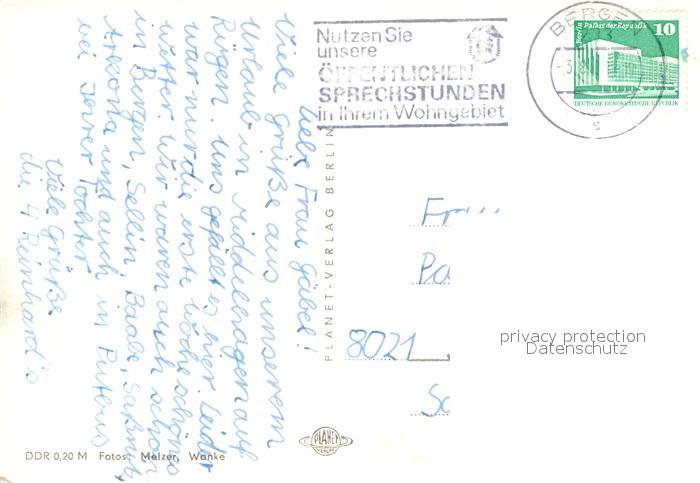 Nutzen Sie
unsere
ÖFFENTLICHEN
SPRECHSTUNDEN
in Ihrem Wohngebiet
BERGEN
s
Berlin Palast der Republik
10
DEUTSCHE DEMOKRATISCHE REPUBLIK
Liebe Frau Gäbel!
Viele Grüße aus unserem
Urlaub in Middelhagen auf
Rügen. Uns gefällt es hier. Leider
war nur die erste Woche schönes
Wetter. Wir waren auch schon
in Bergen, Sellin, Baabe, Saßnitz,
Arkona und auch in Putbus
bei Tochter
Viele Grüße
die 4 Reinhard's
PLANET-VERLAG BERLIN
Fr...
Pa
8021
Sc
privacy protection
Datenschutz
PLANET
VERLAG
DDR 0,20 M Fotos: Melzer, Wanke